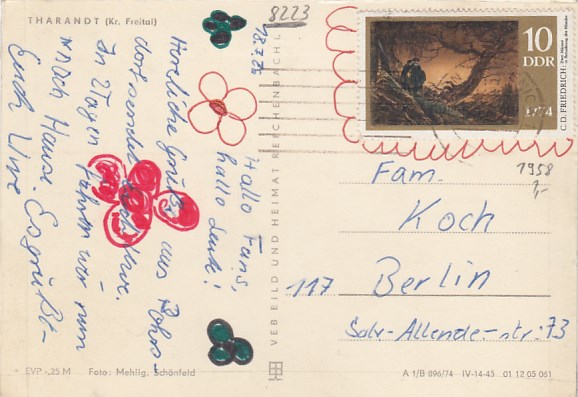 THARANDT (Kr. Freital)
8223
18.7.75
Hallo Fans,
hallo Leute!
Herzliche Grüße aus Rohrs-
dorf sendet Euch Uwe.
In 2 Tagen fahren wir nun
nach Hause. Es grüßt
Euch Uwe
VEB BILD UND HEIMAT REICHENBACH
10
DDR
C. D. FRIEDRICH:
1774
1974
1958
1,-
Fam.
Koch
117 Berlin
Salv.-Allende-str. 73
EVP -,25 M Foto: Mehlig, Schönfeld
A 1/B 896/74 IV-14-45 01 12 05 061